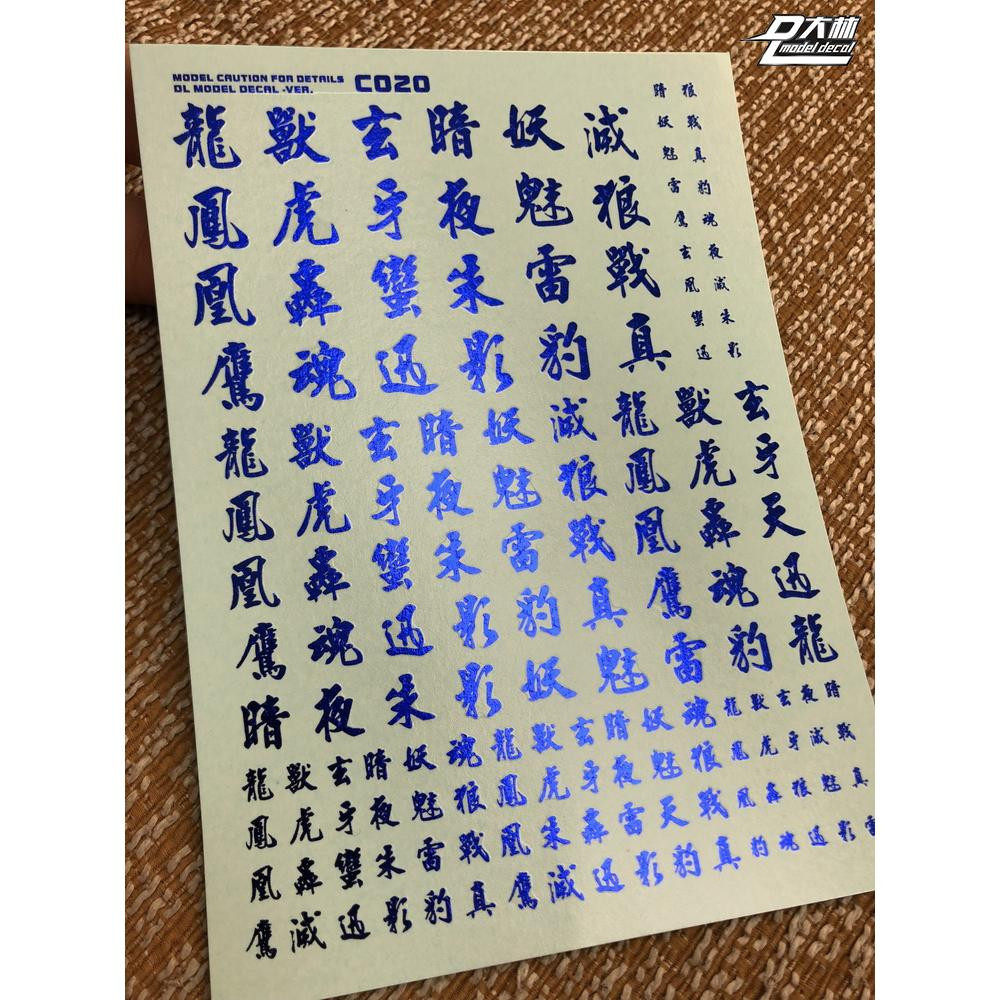 大林
model decal
MODEL CAUTION FOR DETAILS
DL MODEL DECAL -VER.
C020
龍 獸 玄 暗 妖 滅
鳳 虎 牙 夜 魅 狼
凰 轟 蠻 朱 雷 戰
鷹 魂 迅 影 豹 真
暗 狼
妖 戰
魅 真
雷 豹
鷹 魂
玄 夜
凰 滅
蠻 朱
迅 影
龍 獸 玄 暗 妖 滅 龍 獸 玄
鳳 虎 牙 夜 魅 狼 鳳 虎 牙
凰 轟 蠻 朱 雷 戰 凰 轟 天
鷹 魂 迅 影 豹 真 鷹 魂 迅
暗 夜 朱 影 妖 魅 雷 豹 龍
龍 獸 玄 暗 妖 魂 龍 獸 玄 暗 妖 魂 龍 獸 玄 夜 暗
鳳 虎 牙 夜 魅 狼 鳳 虎 牙 夜 魅 狼 鳳 虎 牙 滅 戰
凰 轟 蠻 朱 雷 戰 凰 朱 轟 雷 天 戰 凰 轟 狼 魅 真
鷹 滅 迅 影 豹 真 鷹 滅 迅 影 豹 真 豹 魂 迅 影 雷